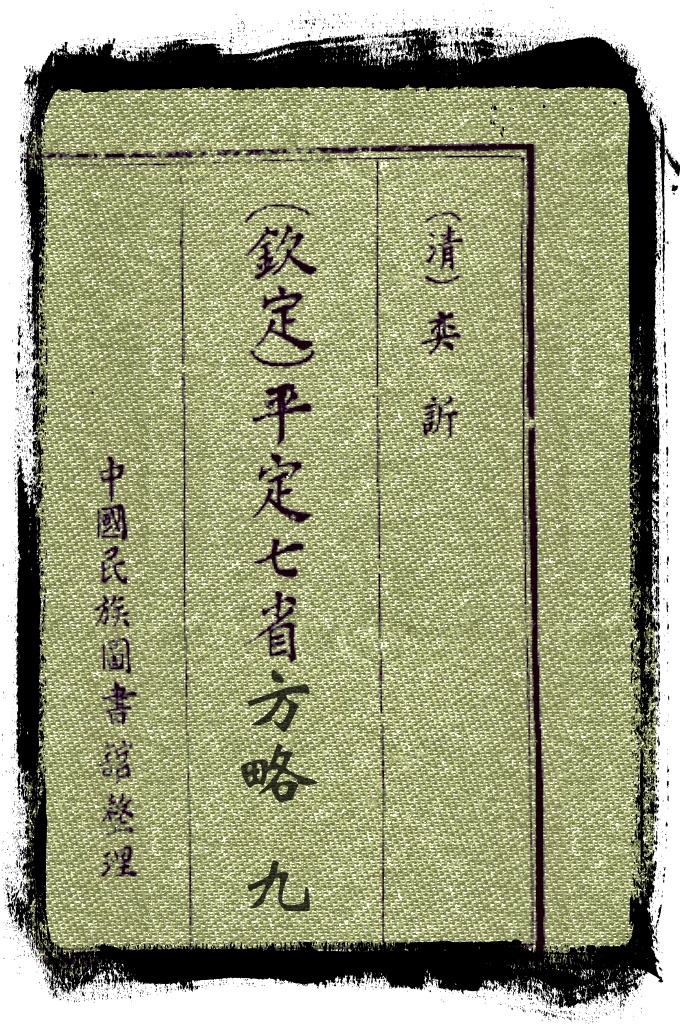 (清)奕訢
(欽定)平定七省方略 九
中國民族圖書館整理